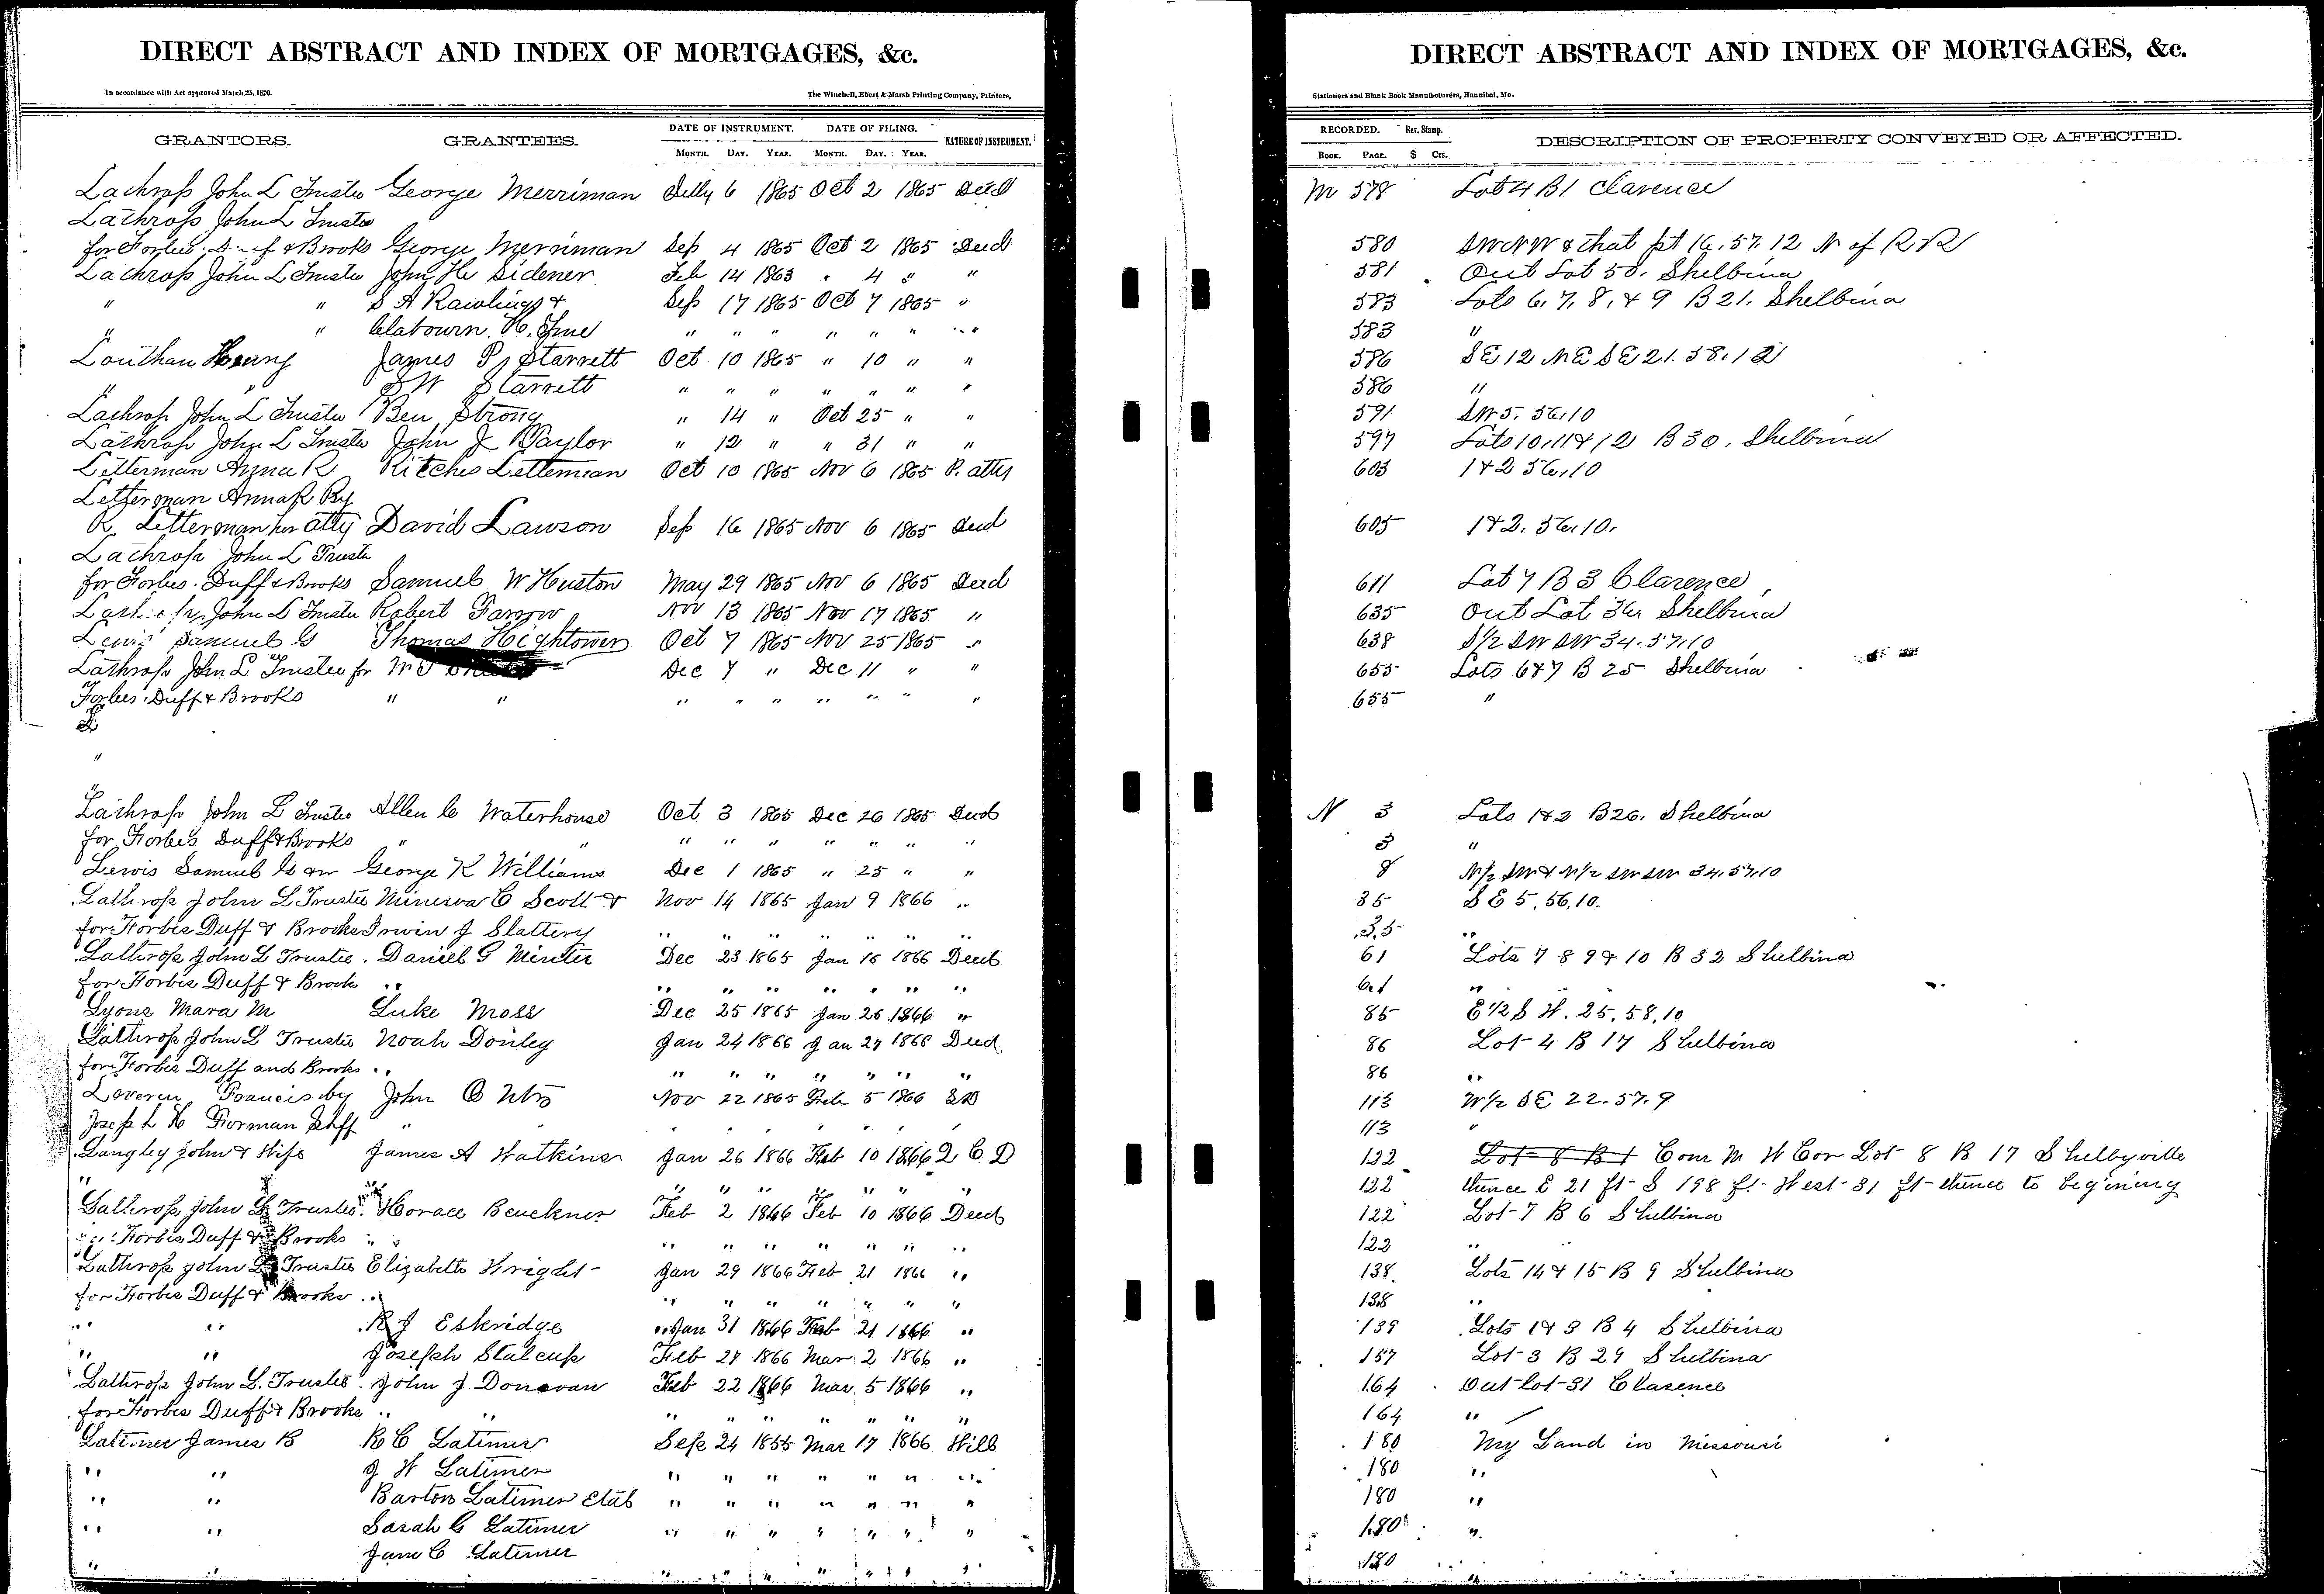 DIRECT ABSTRACT AND INDEX OF MORTGAGES, &c.
In accordance with Act approved March 25, 1870.
The Winchell, Ebert & Marsh Printing Company, Printers,
GRANTORS. GRANTEES. DATE OF INSTRUMENT. DATE OF FILING. NATURE OF INSTRUMENT.
MONTH. DAY. YEAR. MONTH. DAY. YEAR.
Lathrop John L Trustee George Merriman July 6 1865 Oct 2 1865 Deed
Lathrop John L Trustee
for Forbes Duff & Brooks George Merriman Sep 4 1865 Oct 2 1865 Deed
Lathrop John L Trustee John H Sidener Feb 14 1863 " 4 " "
" " S A Rawlings & Sep 17 1865 Oct 7 1865 "
" " Clabourn " " " " " " "
Louthan Henry James P Starrett Oct 10 1865 " 10 " "
" " W Starrett " " " " " " "
Lathrop John L Trustee Ben Strong " 14 " Oct 25 " "
Lathrop John L Trustee John J Taylor " 12 " " 31 " "
Letterman Anna R Ritchie Letterman Oct 10 1865 Nov 6 1865 P. atty
Letterman Anna R By
R. Letterman her atty David Lawson Sep 16 1865 Nov 6 1865 Deed
Lathrop John L Trustee
for Forbes. Duff & Brooks Samuel W Huston May 29 1865 Nov 6 1865 Deed
John L Trustee Robert Farrow Nov 13 1865 Nov 17 1865 "
Lewis Samuel G Thomas Hightower Oct 7 1865 Nov 25 1865 "
Lathrop John L Trustee for W Dec 7 " Dec 11 " "
Forbes. Duff & Brooks " " " " " " " " "
"
"
Lathrop John L Trustee Allen C Waterhouse Oct 3 1865 Dec 26 1865 Deed
for Forbes Duff & Brooks " " " " " " " " "
Lewis Samuel G & w George K Williams Dec 1 1865 " 25 " "
Lathrop John L Trustee Minerva C Scott & Nov 14 1865 Jan 9 1866 "
for Forbis Duff & Brooks Irwin J Slattery " " " " " " "
Lathrop John L Trustee. Daniel G Minter Dec 23 1865 Jan 16 1866 Deed
for Forbis Duff & Brooks " " " " " " " "
Lyons Mara M Luke Moss Dec 25 1865 Jan 26 1866 "
Lathrop John L Trustee Noah Donley Jan 24 1866 Jan 27 1866 Deed
for Forbis Duff and Brooks " " " " " " " "
Loveren Francis by John C Utz Nov 22 1865 Feb 5 1866 SD
Joseph H Forman Shff " " " " " " " "
Langley John & Wife James A Watkins Jan 26 1866 Feb 10 1866 Q C D
" " " " " " "
Lathrop John L Trustee. Horace Beuckner Feb 2 1866 Feb 10 1866 Deed
Forbis Duff & Brooks " " " " " " " "
Lathrop John L Trustee Elizabeth Wright Jan 29 1866 Feb 21 1866 "
for Forbis Duff & Brooks " " " " " " " "
" " R J Eskridge Jan 31 1866 Feb 21 1866 "
" " Joseph Stalcup Feb 27 1866 Mar 2 1866 "
Lathrop John L. Trustee. John J. Donovan Feb 22 1866 Mar 5 1866 "
for Forbis Duff & Brooks " " " " " " " " "
Latimer James B R C Latimer Sep 24 1855 Mar 17 1866 Will
" " J W Latimer " " " " " " "
" " Barton Latimer " " " " " " "
" " Sarah C Latimer " " " " " " "
" " Jane C Latimer " " " " " " "
DIRECT ABSTRACT AND INDEX OF MORTGAGES, &c.
Stationers and Blank Book Manufacturers, Hannibal, Mo.
RECORDED. Rev. Stamp. DESCRIPTION OF PROPERTY CONVEYED OR AFFECTED.
BOOK. PAGE. $ Cts.
M 578 Lot 4 B1 Clarence
580 SWNW & that pt 16. 57. 12 N of RR
581 Out Lot 50. Shelbina
583 Lots 6, 7, 8, & 9 B 21. Shelbina
583 "
586 SE 12 NE SE 21. 58. 12
586 "
591 SW 5. 56, 10
597 Lots 10, 11 & 12 B 30. Shelbina
603 1 & 2 56, 10
605 1 & 2. 56. 10.
611 Lot 7 B 3 Clarence
635 Out Lot 36 Shelbina
638 S 1/2 SW SW 34. 57. 10
655 Lots 6 & 7 B 25 Shelbina
655 "
N 3 Lots 1 & 2 B 26. Shelbina
3 "
8 N 1/2 SW & N 1/2 SW SW 34. 57. 10
35 S E 5. 56. 10.
35 "
61 Lots 7 8 9 & 10 B 32 Shelbina
61 "
85 E 1/2 S W. 25. 58. 10
86 Lot 4 B 17 Shelbina
86 "
113 W 1/2 SE 22. 57. 9
113 "
122 Lot 8 B 1 Com N W Cor Lot 8 B 17 Shelbyville
122 thence E 21 ft S 198 ft West 31 ft thence to begining
122 Lot 7 B 6 Shelbina
122 "
138 Lots 14 & 15 B 9 Shelbina
138 "
139 Lots 1 & 3 B 4 Shelbina
157 Lot 3 B 29 Shelbina
164 Out lot 31 Clarence
164 "
180 My Land in Missouri
180 "
180 "
180 "
180 "